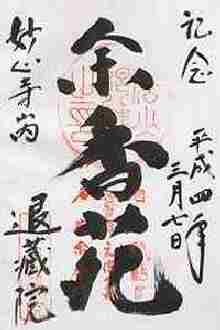 記念
平成四年
三月七日
余香苑
妙心寺内
退蔵院